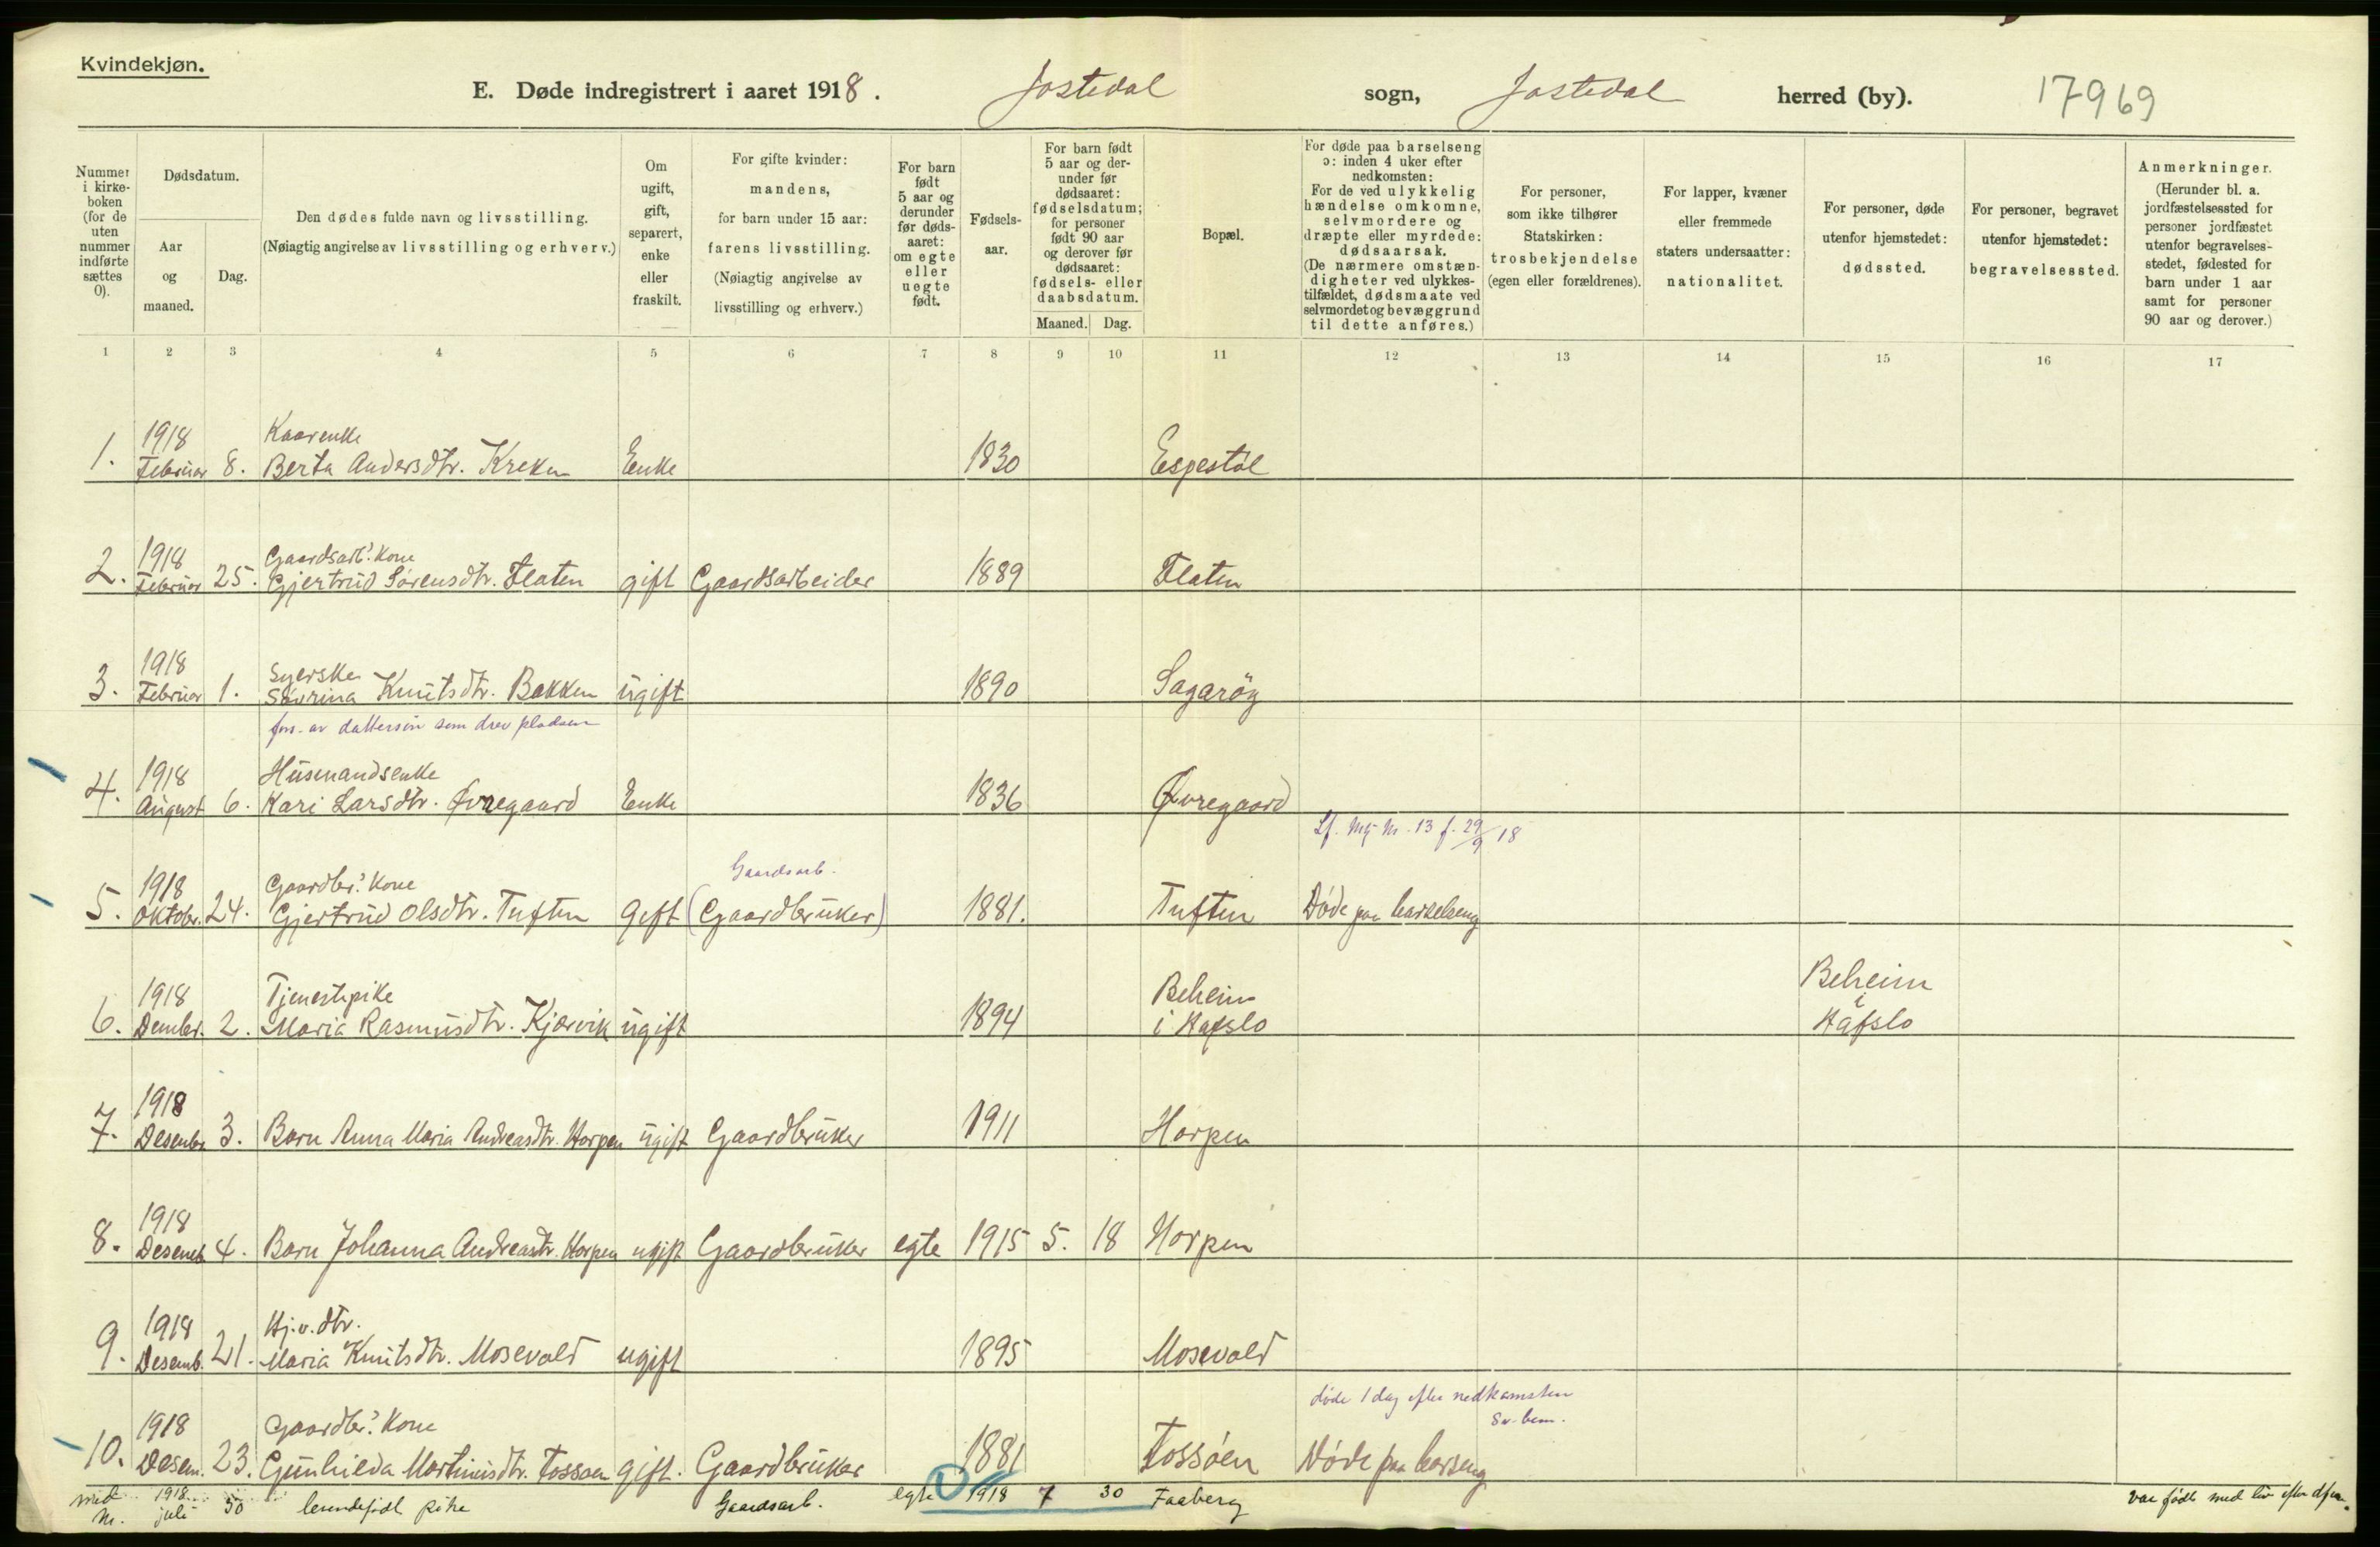 Kvindekjøn.
E. Døde indregistrert i aaret 1918. Jostedal sogn, Jostedal herred (by). 17969
Nummer i kirke-boken (for de uten nummer indførte sættes 0).
Dødsdatum.
Aar og maaned.
Dag.
Den dødes fulde navn og livsstilling.
(Nøiagtig angivelse av livsstilling og erhverv.)
Om ugift, gift, separert, enke eller fraskilt.
For gifte kvinder: mandens, for barn under 15 aar: farens livsstilling. (Nøiagtig angivelse av livsstilling og erhverv.)
For barn født 5 aar og derunder før døds-aaret: om egte eller uegte født.
Fødsels-aar.
For barn født 5 aar og der-under før dødsaaret: fødselsdatum; for personer født 90 aar og derover før dødsaaret: fødsels- eller daabsdatum.
Maaned. Dag.
Bopæl.
For døde paa barselseng ɔ: inden 4 uker efter nedkomsten: For de ved ulykkelig hændelse omkomne, selvmordere og dræpte eller myrdede: dødsaarsak. (De nærmere omstæn-digheter ved ulykkes-tilfældet, dødsmaate ved selvmordet og bevæggrund til dette anføres.)
For personer, som ikke tilhører Statskirken: trosbekjendelse (egen eller forældrenes).
For lapper, kvæner eller fremmede staters undersaatter: nationalitet.
For personer, døde utenfor hjemstedet: dødssted.
For personer, begravet utenfor hjemstedet: begravelsessted.
Anmerkninger. (Herunder bl. a. jordfæstelsessted for personer jordfæstet utenfor begravelses-stedet, fødested for barn under 1 aar samt for personer 90 aar og derover.)
1 2 3 4 5 6 7 8 9 10 11 12 13 14 15 16 17
1918 Kaarenke
1. Februar 8. Berta Andersdtr. Kreken Enke 1830 Espestøl
1918 Gaardsarb.' Kone
2. Februar 25. Gjertrud Sørensdtr. Flaten gift Gaardsarbeider 1889 Flaten
1918 Syerske
3. Februar 1. Severina Knutsdtr. Bakken ugift 1890 Sagarøy
fors. av dattersøn som drev pladsen
1918 Husmandsenke
4. August 6. Kari Larsdtr. Øvregaard Enke 1836 Øvregaard
Lf. Mk nr. 13 f. 29/9 18
1918 Gaardbr.' Kone Gaardsarb.
5. Oktobr. 24. Gjertrud Olsdtr. Tuften gift (Gaardbruker) 1881. Tuften Døde paa barselseng
1918 Tjenestepike Beheim Beheim
6. Dember. 2. Maria Rasmusdtr. Kjærvik ugift 1894 i Hafslo i Hafslo
1918
7. Desember 3. Barn Anna Maria Andreasdtr. Horpen ugift Gaardbruker 1911 Horpen
1918
8. Desemb 4. Barn Johanna Andreasdtr. Horpen ugift Gaardbruker egte 1915 5. 18 Horpen
1918 Hj.v. dtr.
9. Desemb. 21. Maria Knutsdtr. Mosevold ugift 1895 Mosevold
døde 1 dag efter nedkomsten
Sv. bem.
1918 Gaardbr.' Kone
10. Desem. 23. Gunhilda Martinusdtr. Fossøen gift. Gaardbruker 1881 Fossøen Døde paa barseng
1918
juli 30 levendefødt pike Gaardsarb. egte 1 1918 7 30 Faaberg var født med liv efter dfm.